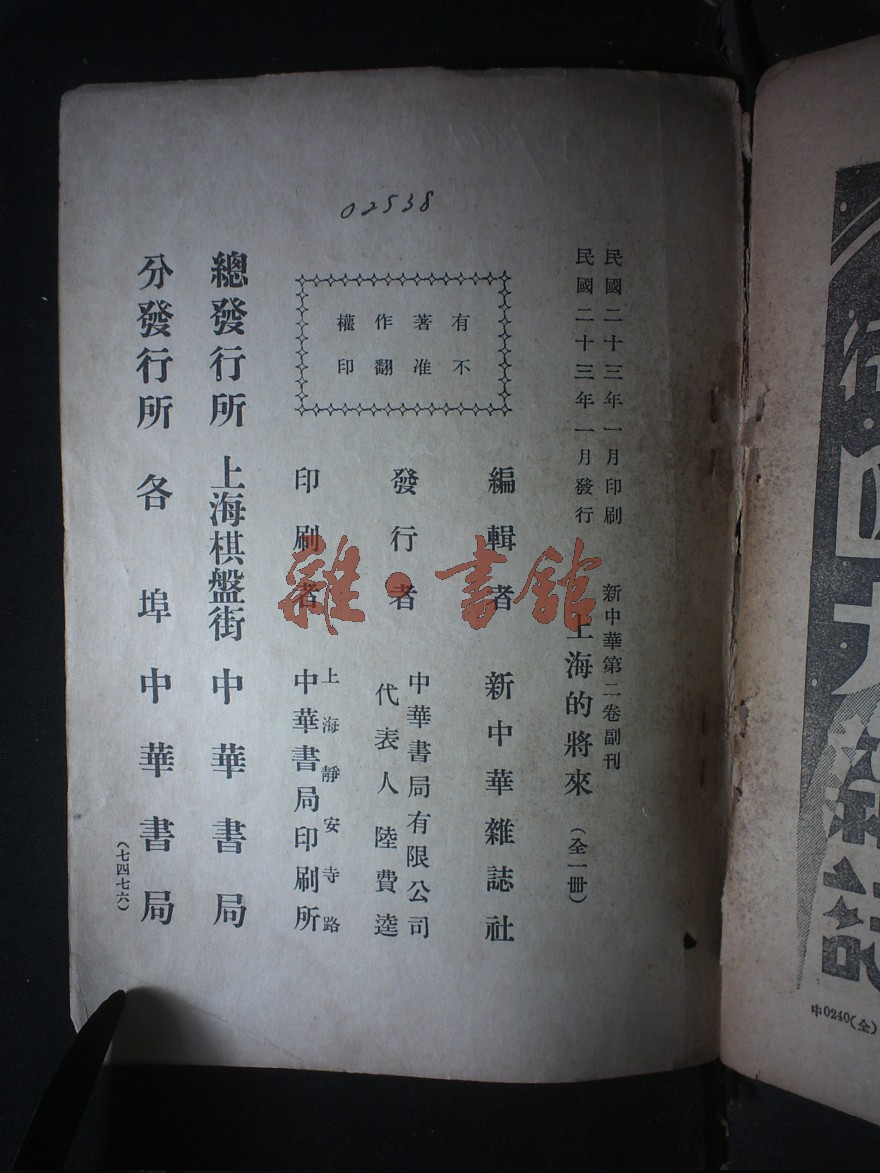 02538
民國二十三年一月印刷
新中華第二卷副刊
民國二十三年一月發行
上海的將來
(全一冊)
有不
著准
作翻
權印
編輯者 新中華雜誌社
發行者
中華書局有限公司
代表人陸費逵
印刷者
上海靜安寺路
中華書局印刷所
總發行所 上海棋盤街 中華書局
分發行所 各埠 中華書局
(七四七六)
雜·書館
中0240(全)